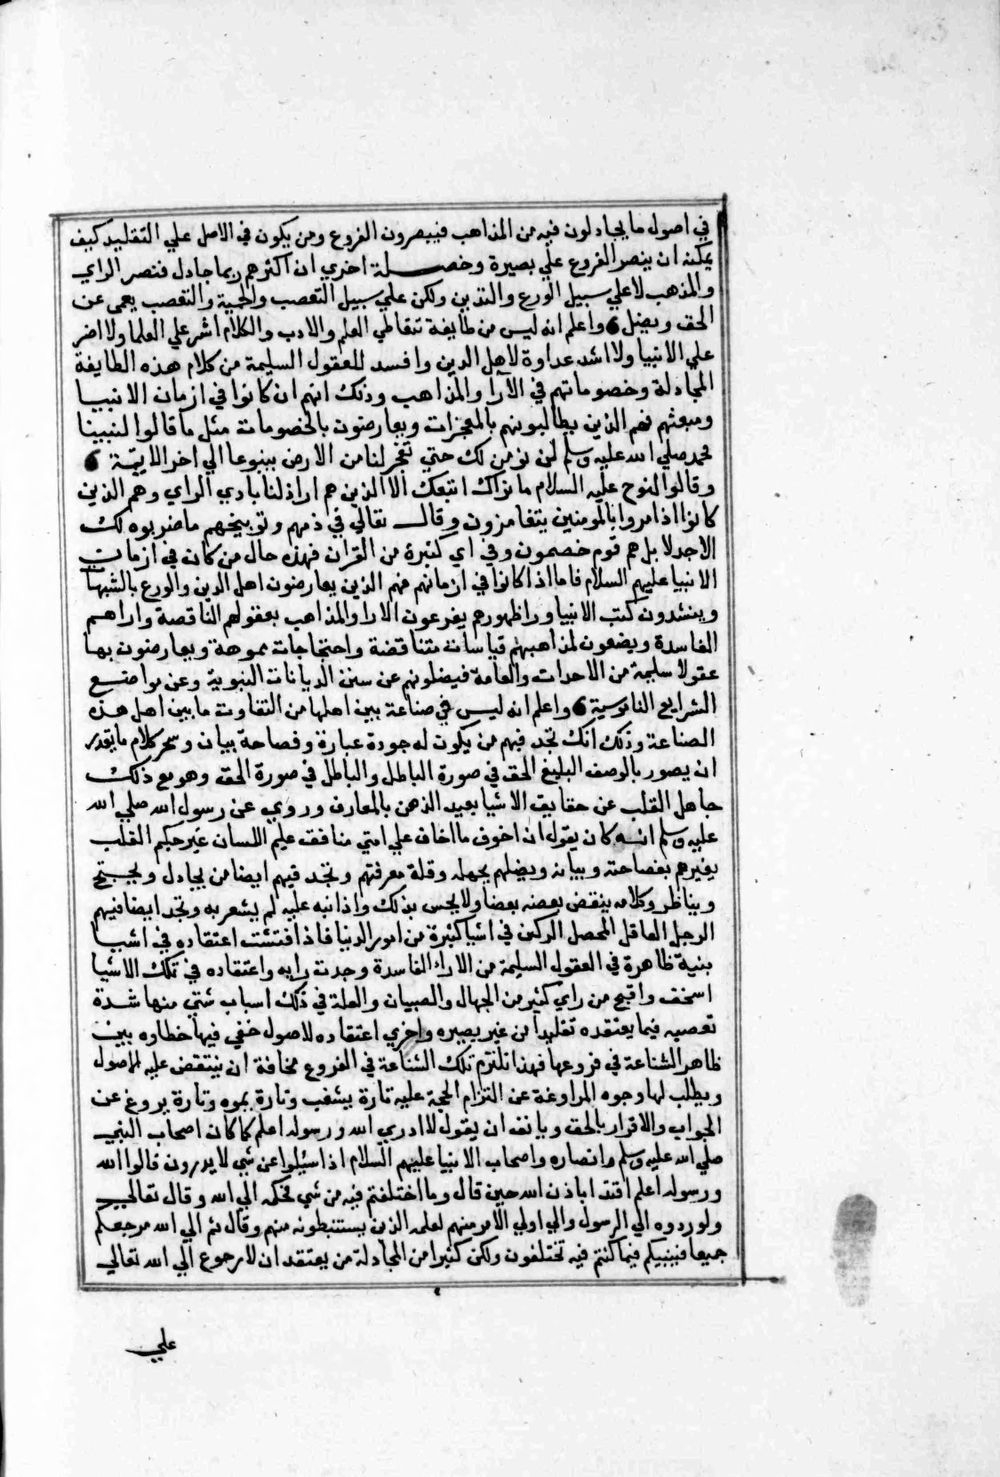 في اصول ما يجادلون فيه من المذاهب فيبصرون الفروع ومن يكون في الاصل علي التقليد كيف
يمكنه ان يبصر الفروع علي بصيرة وخصلة اخري ان اكثرهم ربما جادل فنصر الراي
والمذهب لا علي سبيل الورع والتدين ولكن علي سبيل التعصب والحمية والتعصب يعمي عن
الحق ويضل واعلم انه ليس من طايفة تتعاطي العلم والادب والكلام اشر علي العلما ولا اضر
علي الانبيا ولا اشد عداوة لاهل الدين وافسد للعقول السليمة من كلام هذه الطايفة
المجادلة وخصوماتهم في الارا والمذاهب وذلك انهم ان كانوا في ازمان الانبيا
ومبعثهم فهم الذين يطالبونهم بالمعجزات ويعارضون بالخصومات مثل ما قالوا لنبينا
محمد صلي الله عليه وسلم لن نومن لك حتي تفجر لنا من الارض ينبوعا الي اخر الاية
وقالوا لنوح عليه السلام ما نراك اتبعك الا الذين هم اراذلنا بادي الراي وهم الذين
كانوا اذا مروا بالمومنين يتغامزون وقال تعالي في ذمهم وتوبيخهم ما ضربوه لك
الا جدلا بل هم قوم خصمون وفي اي كثيرة من القران فهذه حال من كان في ازمان
الانبيا عليهم السلام فاما اذا كانوا في ازمانهم فهم الذين يعارضون اهل الدين والورع بالشبهات
وينبذون كتب الانبيا ورا ظهورهم يفرعون الارا والمذاهب بعقولهم الناقصة واراهم
الفاسدة ويضعون لمذاهبهم قياسات متناقضة واحتجاجات مموهة ويعارضون بها
عقولا سليمة من الاحداث والعامة فيضلونهم عن سنن الديانات النبوية وعن مواضع
الشرايع الناموسية واعلم انه ليس في صناعة بين اهلها من التفاوت ما بين اهل هذه
الصناعة وذلك انك تجد فيهم من يكون له جودة عبارة وفصاحة بيان وسحر كلام ما يقدر
ان يصور بالوصف البليغ الحق في صورة الباطل والباطل في صورة الحق وهو مع ذلك
جاهل القلب عن حقايق الاشيا بعيد الذهن بالمعارف وروي عن رسول الله صلي الله
عليه وسلم انه كان يقول ان اخوف ما اخاف علي امتي منافق عليم اللسان غير حكيم القلب
يغيرهم بفصاحته وبيانه ويضلهم بجهله وقلة معرفتهم وتجد فيهم ايضا من يجادل ويحتج
ويناظر وكلامه ينقض بعضه بعضا ولا يحس بذلك واذا نبه عليه لم يشعر به وتجد ايضا فيهم
الرجل العاقل المحصل الركن في اشيا كثيرة من امور الدنيا فاذا فتشت اعتقاده في اشيا
بنية ظاهرة في العقول السليمة من الارا الفاسدة وجدت رايه واعتقاده في تلك الاشيا
اسخف واقبح من راي كثير من الجهال والصبيان والعلة في ذلك اسباب شتي منها شدة
تعصبه فيما يعتقده تقليدا من غير بصيره واخري اعتقاده لاصول خفي فيها خطاره بين
ظاهر الشناعة في فروعها فهذا تلتزم تلك الشناعة في الفروع مخافة ان ينتقض عليه الاصول
ويطلب لها وجوه المراوغة عن التزام الحجة عليه تارة يشغب وتارة يموه وتارة يروغ عن
الجواب والاقرار بالحق ويانف ان يقول لا ادري الله ورسوله اعلم كما كان اصحاب النبي
صلي الله عليه وسلم وانصاره واصحاب الانبيا عليهم السلام اذا سيلوا عن شي لا يدرون قالوا الله
ورسوله اعلم اقتدا باذن الله حين قال وما اختلفتم فيه من شي فحكمه الي الله وقال تعالي
ولو ردوه الي الرسول والي اولي الامر منهم لعلمه الذين يستنبطونه منهم وقال ثم الي الله مرجعكم
جميعا فينبيكم فيما كنتم فيه تختلفون ولكن كثيرا من المجادلة من يعتقد ان لا رجوع الي الله تعالي
علي